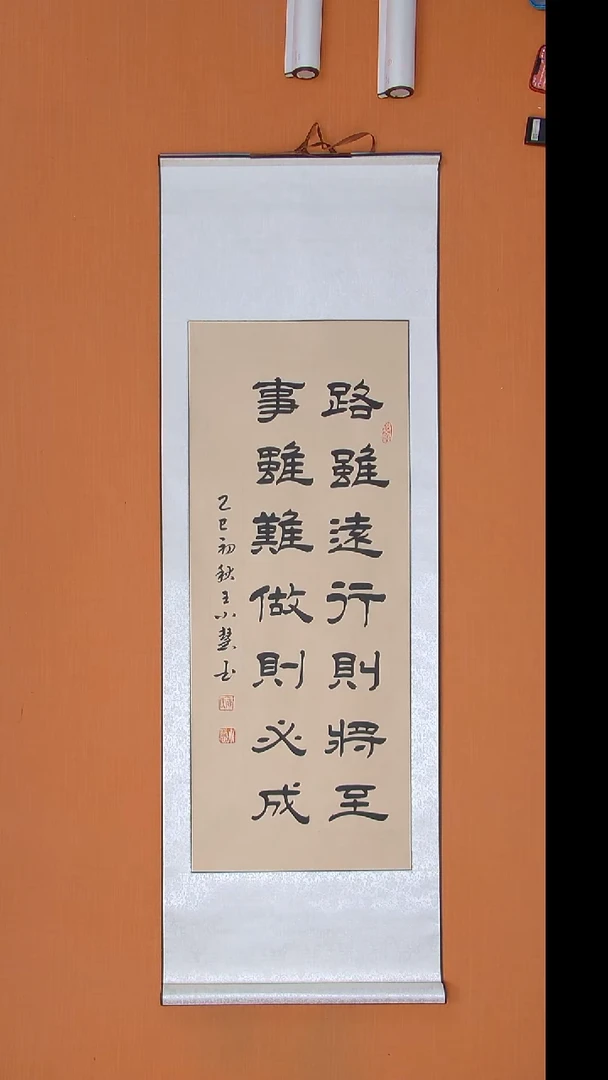 路雖遠行則將至
事雖難做則必成
乙巳初秋王小慧书